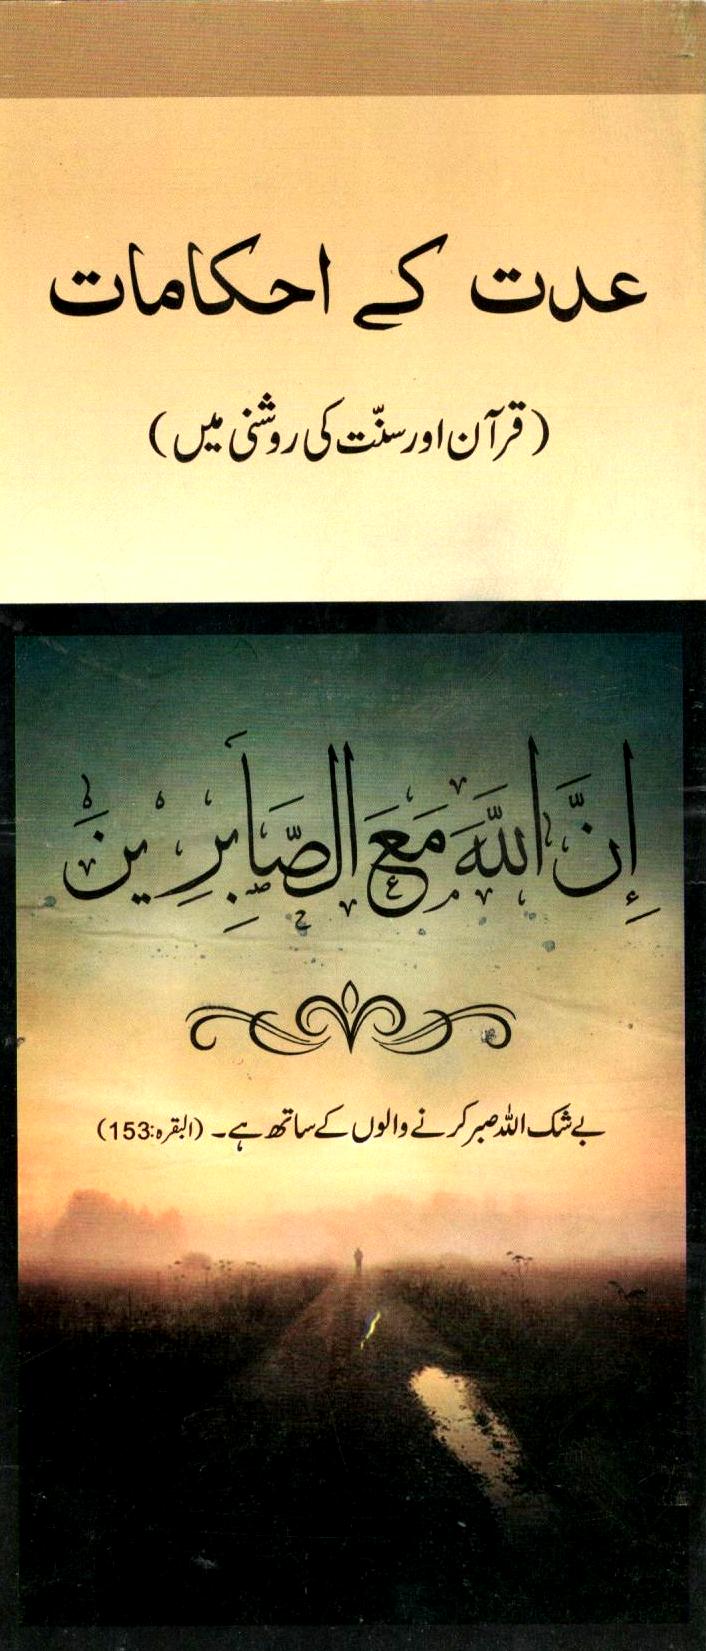 عدت کے احکامات
(قرآن اور سنّت کی روشنی میں)
إِنَّ اللَّهَ مَعَ الصَّابِرِينَ
بے شک اللہ صبر کرنے والوں کے ساتھ ہے۔ (البقرہ:153)